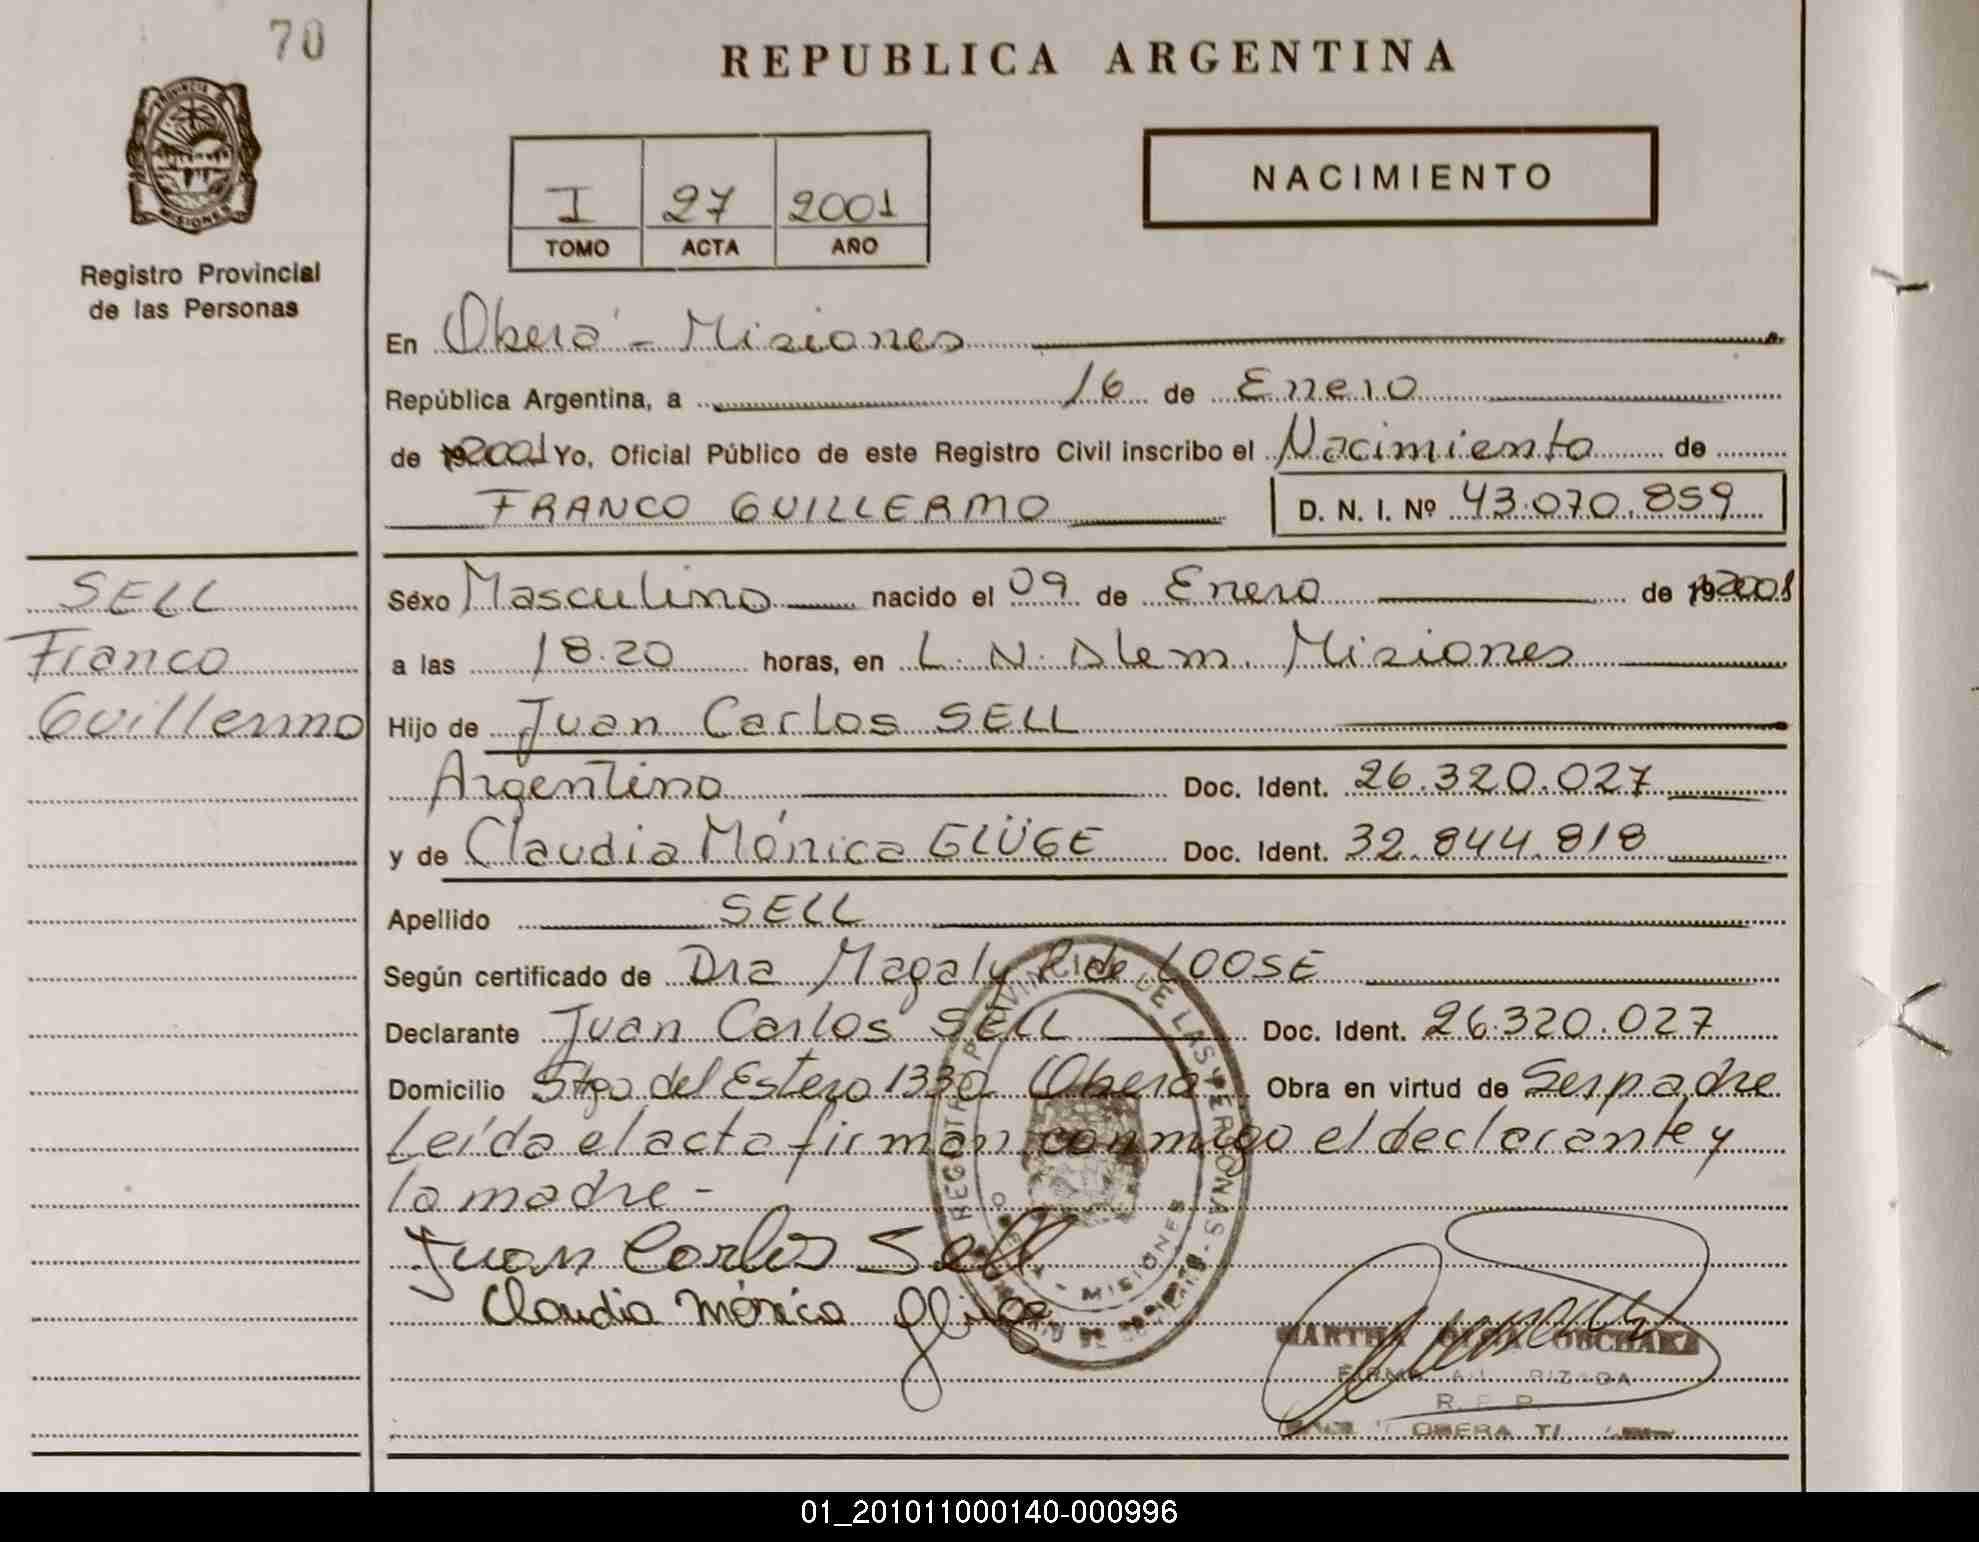 70
REPUBLICA ARGENTINA
PROVINCIA
MISIONES
Registro Provincial
de las Personas
I 27 2001
TOMO ACTA AÑO
NACIMIENTO
En Oberá - Misiones
República Argentina, a 16 de Enero
de 2001 Yo, Oficial Público de este Registro Civil inscribo el Nacimiento de
FRANCO GUILLERMO D. N. I. Nº 43.070.859
SELL
Franco
Guillermo
Sexo Masculino nacido el 09 de Enero de 2001
a las 18.20 horas, en L. N. Alem. Misiones
Hijo de Juan Carlos SELL
Argentino Doc. Ident. 26.320.027
y de Claudia Mónica GLÜGE Doc. Ident. 32.844.818
Apellido SELL
Según certificado de Dra Magaly R de LOOSE
Declarante Juan Carlos SELL Doc. Ident. 26.320.027
Domicilio Stgo del Estero 1330 Oberá Obra en virtud de Ser padre
Leída el acta firman conmigo el declarante y
la madre -
Juan Carlos Sell
Claudia Mónica Glüge
REGISTRO PROVINCIAL DE LAS PERSONAS
OBERA - MISIONES
MARTHA
FIRMA AUTORIZADA
R. P. P.
OBERA
01_201011000140-000996